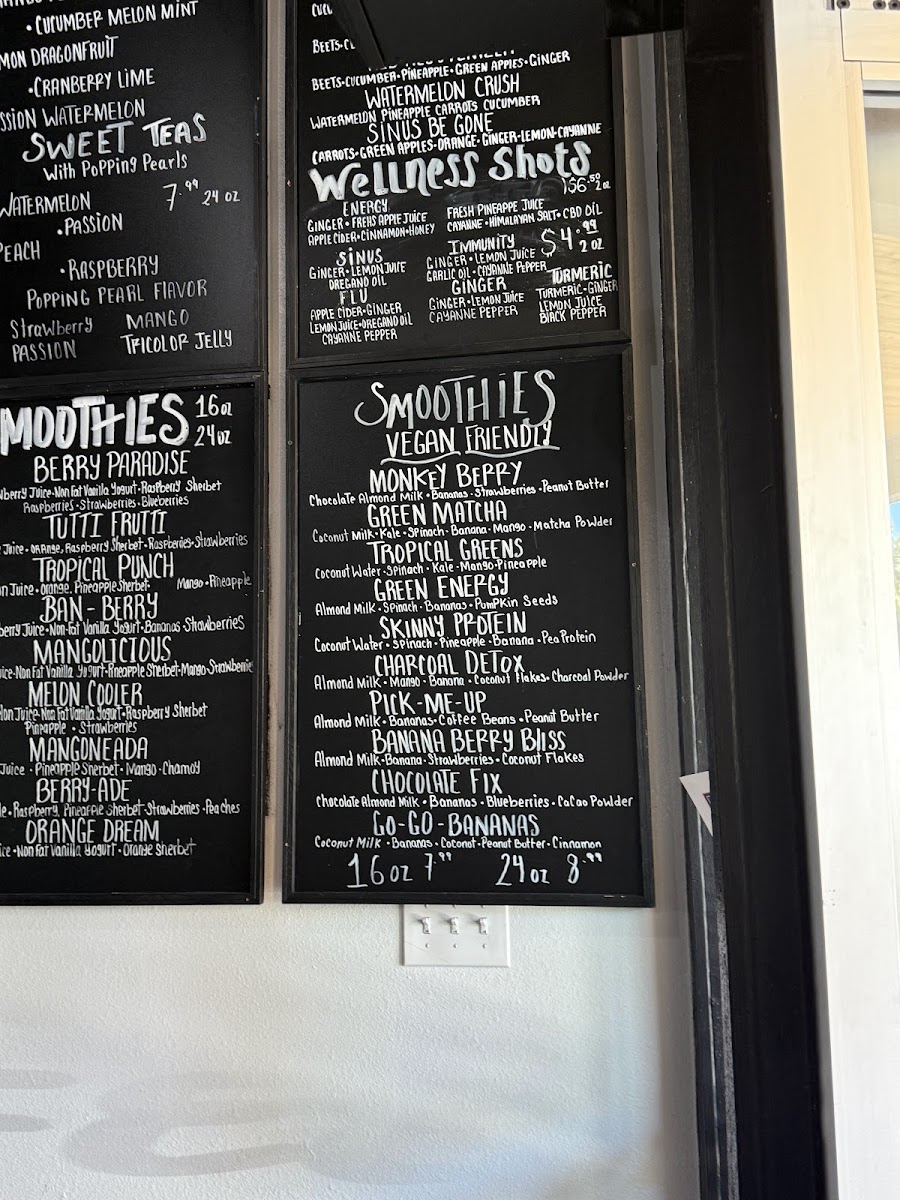 • CUCUMBER MELON MINT
DRAGONFRUIT
• CRANBERRY LIME
WATERMELON
SWEET TEAS
With Popping Pearls
WATERMELON
7.99 24 oz
• PASSION
PEACH
• RASPBERRY
POPPING PEARL FLAVOR
Strawberry MANGO
PASSION TRICOLOR JELLY
SMOOTHIES 16oz
24oz
BERRY PARADISE
Juice • Non Fat Vanilla Yogurt • Raspberry Sherbet
Raspberries • Strawberries • Blueberries
TUTTI FRUTTI
Juice • orange, Raspberry Sherbet • Raspberies • Strawberries
TROPICAL PUNCH
Juice • orange, Pineapple Sherbet • Mango • Pineapple
BAN - BERRY
Juice • Non-Fat Vanilla Yogurt • Bananas • Strawberries
MANGOLICIOUS
Non Fat Vanilla Yogurt • Pineapple Sherbet • Mango • Strawberrie
MELON COOLER
Juice • Non Fat Vanilla Yogurt • Raspberry Sherbet
Pineapple • Strawberries
MANGONEADA
Juice • Pineapple Sherbet • Mango • Chamoy
BERRY-ADE
Raspberry, Pineapple Sherbet • Strawberries • Peaches
ORANGE DREAM
Non Fat Vanilla Yogurt • Orange Sherbet
BEETS
BEETS • CUCUMBER • PINEAPPLE • GREEN APPLES • GINGER
WATERMELON CRUSH
WATERMELON PINEAPPLE CARROTS CUCUMBER
SINUS BE GONE
CARROTS • GREEN APPLES • ORANGE • GINGER • LEMON • CAYANNE
Wellness Shots
$6.50 2 oz
ENERGY
GINGER • FREHS APPLE JUICE
APPLE CIDER • CINNAMON • HONEY
FRESH PINEAPPE JUICE
CAYANNE • HIMALAYAN SALT • CBD OIL
$4.99 2 oz
SINUS
GINGER • LEMON JUICE
OREGANO OIL
IMMUNITY
GINGER • LEMON JUICE
GARLIC OIL • CAYANNE PEPPER
FLU
APPLE CIDER • GINGER
LEMON JUICE • OREGANO OIL
CAYANNE PEPPER
GINGER
GINGER • LEMON JUICE
CAYANNE PEPPER
TURMERIC
TURMERIC • GINGER
LEMON JUICE
BLACK PEPPER
SMOOTHIES
VEGAN FRIENDLY
MONKEY BERRY
Chocolate Almond Milk • Bananas • Strawberries • Peanut Butter
GREEN MATCHA
Coconut Milk • Kale • Spinach • Banana • Mango • Matcha Powder
TROPICAL GREENS
Coconut Water • Spinach • Kale • Mango • Pineapple
GREEN ENERGY
Almond Milk • Spinach • Bananas • Pumpkin Seeds
SKINNY PROTEIN
Coconut Water • Spinach • Pineapple • Banana • Pea Protein
CHARCOAL DETOX
Almond Milk • Mango • Banana • Coconut Flakes • Charcoal Powder
PICK-ME-UP
Almond Milk • Bananas • Coffee Beans • Peanut Butter
BANANA BERRY BLISS
Almond Milk • Banana • Strawberries • Coconut Flakes
CHOCOLATE FIX
Chocolate Almond Milk • Bananas • Blueberries • CaCao Powlder
GO-GO-BANANAS
Coconut Milk • Bananas • Coconut • Peanut Butter • Cinnamon
16 oz 7.99 24 oz 8.99